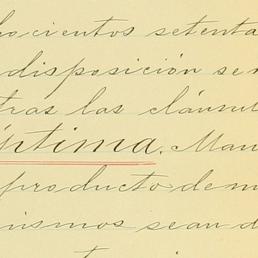 hocientos setenta
disposición se
tras las cláusul
éptima. Man
producto de m
mismos sean d